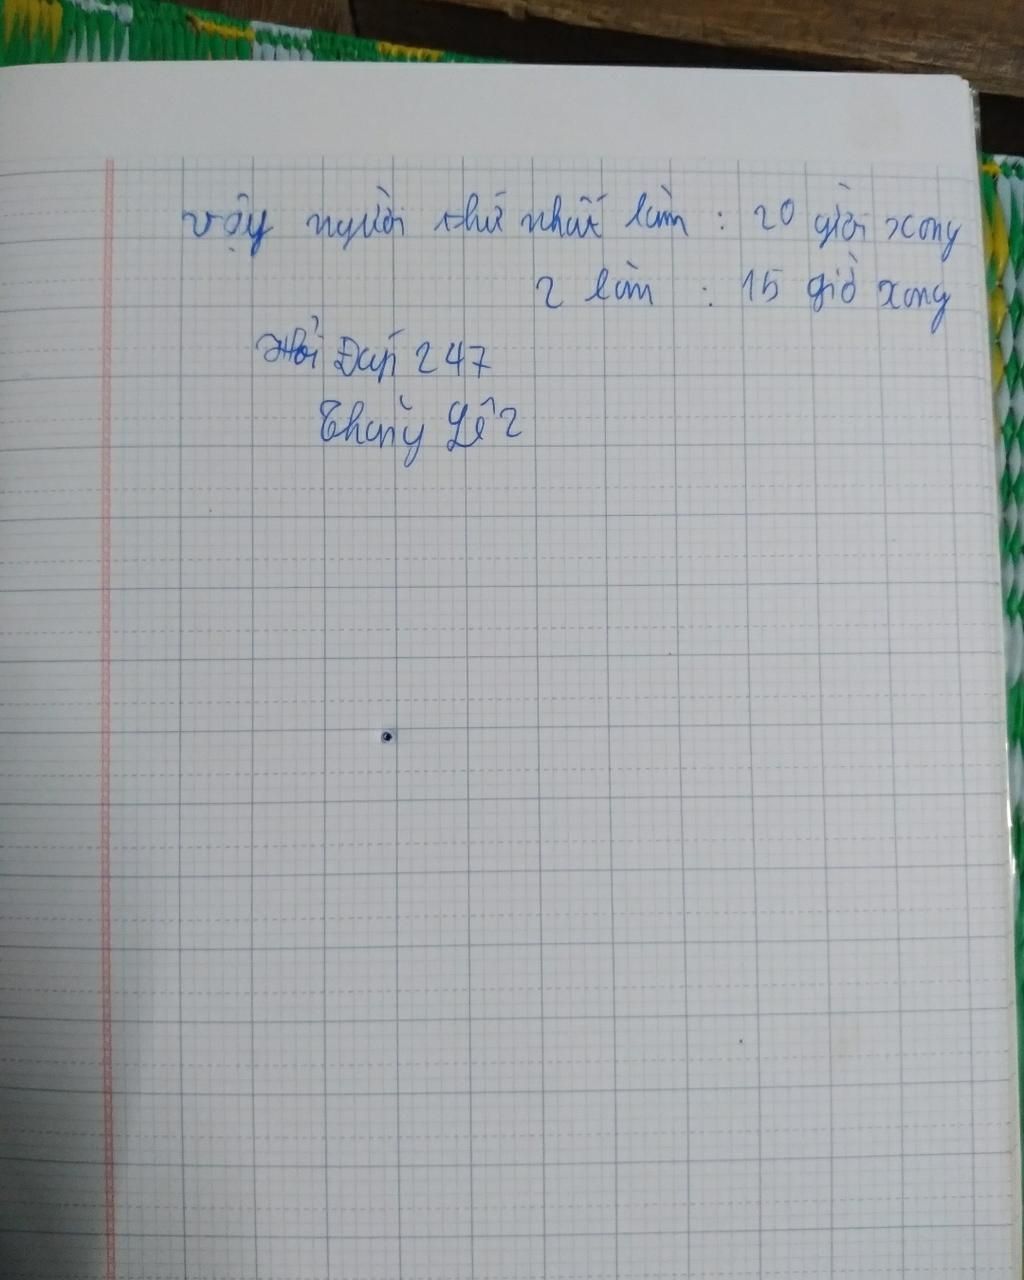 Vậy người thứ nhất làm : 20 giờ xong
2 làm : 15 giờ xong
Hỏi Đáp 247
Thùy Lê 2